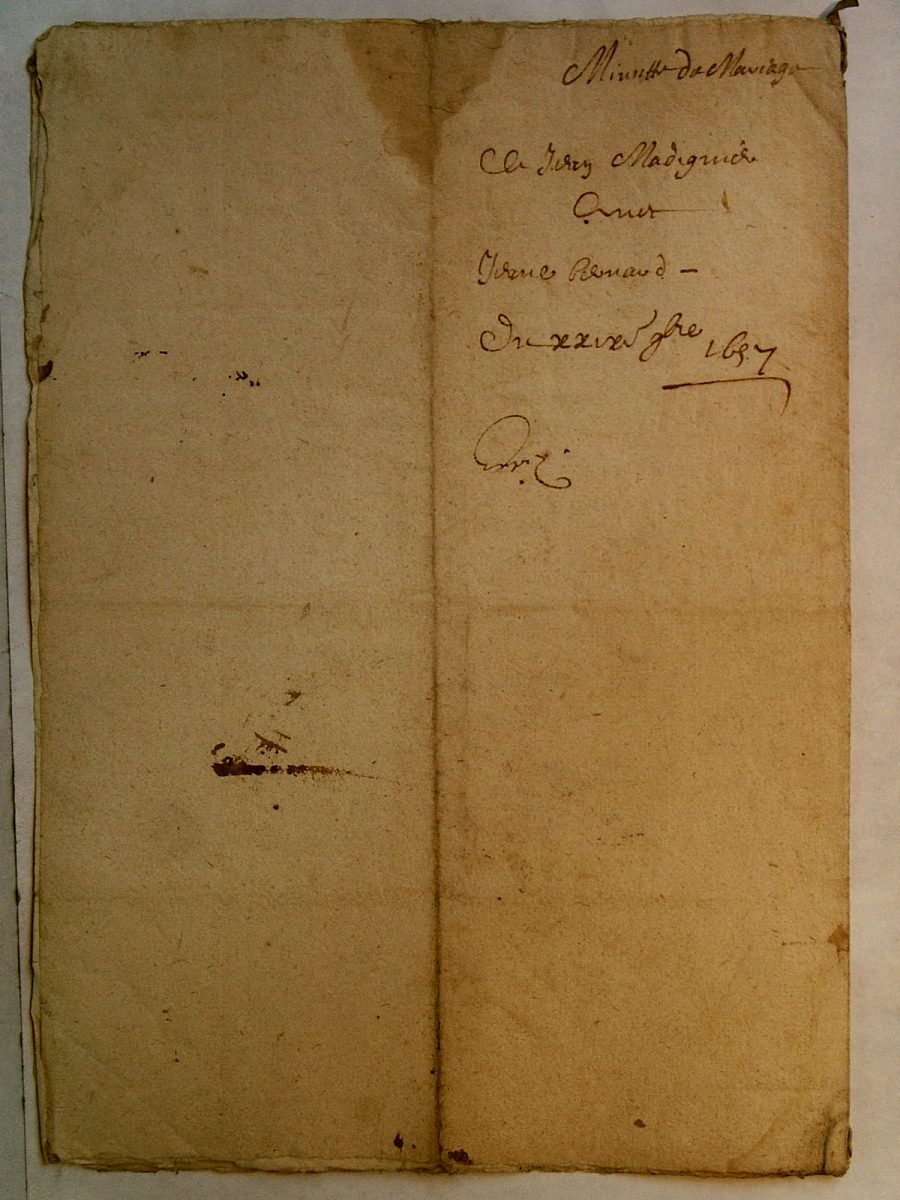 Minutte de Mariage
De Jean Madignier
Avec
Jeane Renard -
Du xxix 9bre 1657